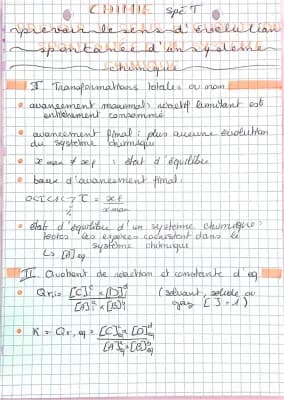 CHIMIE SPÉ T
prévoir le sens d'évolution
spontanée d'un système
chimique
I Transformations totales ou non
• avancement maximal : réactif limitant est
entièrement consommé
• avancement final : plus aucune évolution
du système chimique
• x max ≠ xf : état d'équilibre
• taux d'avancement final :
0<τ<1 → τ = xf / xmax
• état d'équilibre d'un système chimique :
toutes les espèces coexistent dans le
système chimique
↳ [A]eq
II Quotient de réaction et constante d'eq
Qr,i = [C]ᶜi × [D]ᵈi / [A]ᵃi × [B]ᵇi (solvant, solide ou
gaz [ ] = 1)
• K = Qr,eq = [C]ᶜeq × [D]ᵈeq / [A]ᵃeq × [B]ᵇeq